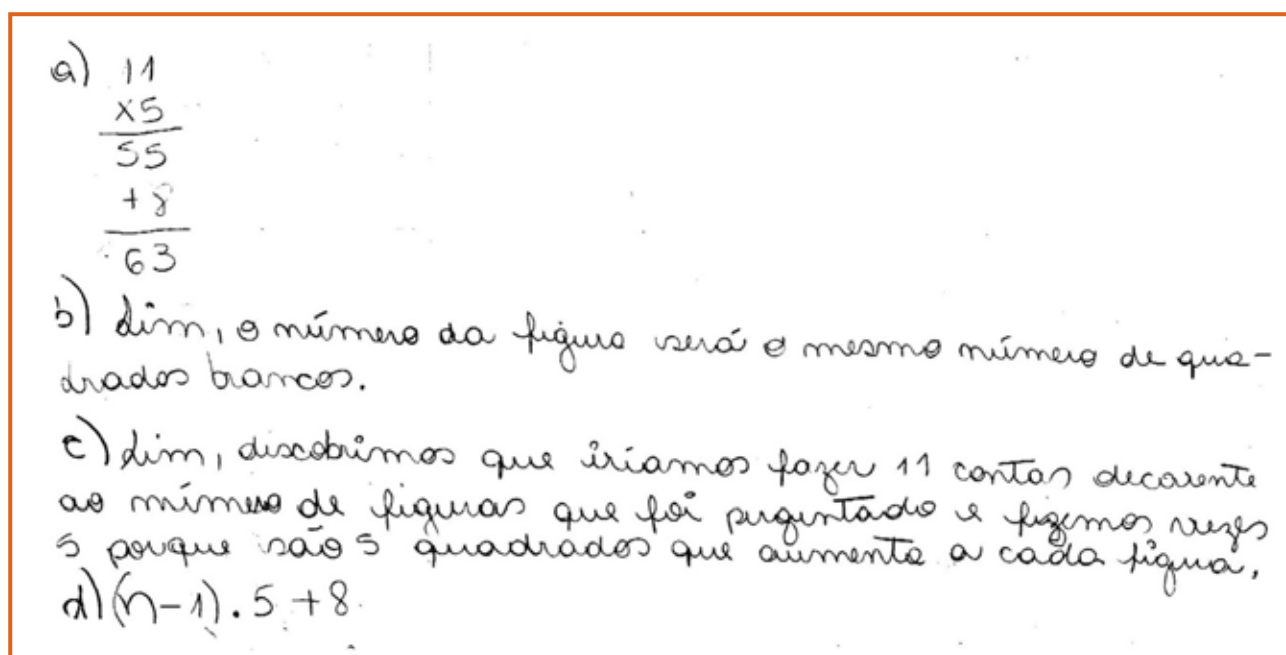 a) 11
x5
55
+ 8
63
b) Sim, o número da figura será o mesmo número de qua-
drados brancos.
c) Sim, discobrimos que iriamos fazer 11 contas decorente
ao número de figuras que foi preguntado e fizemos vezes
5 porque são 5 quadrados que aumenta a cada figura.
d) (n-1) . 5 + 8